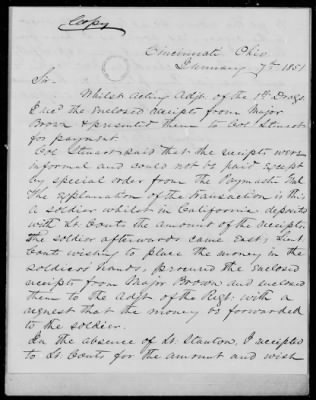 Copy
Cincinnati Ohio
January 7th 1851
Sir.
Whilst acting Adjt. of the 1st Drags.
I rec'd the enclosed receipts from Major
Brown & presented them to Col Stuart
for payment.
Col Stuart said that the receipts were
informal and could not be paid except
by special order from the Paymaster Genl
The explanation of the transaction is this
a soldier whilst in California deposits
with Lt. Couts the amount of the receipts,
the soldier afterwards came East; Lieut
Couts wishing to place the money in the
soldiers hands, procured the enclosed
receipts from Major Brown and enclosed
them to the Adjt of the Regt. with a
request that the money be forwarded
to the soldier.
In the absence of Lt. Stanton, I receipted
to Lt. Couts for the amount and wish